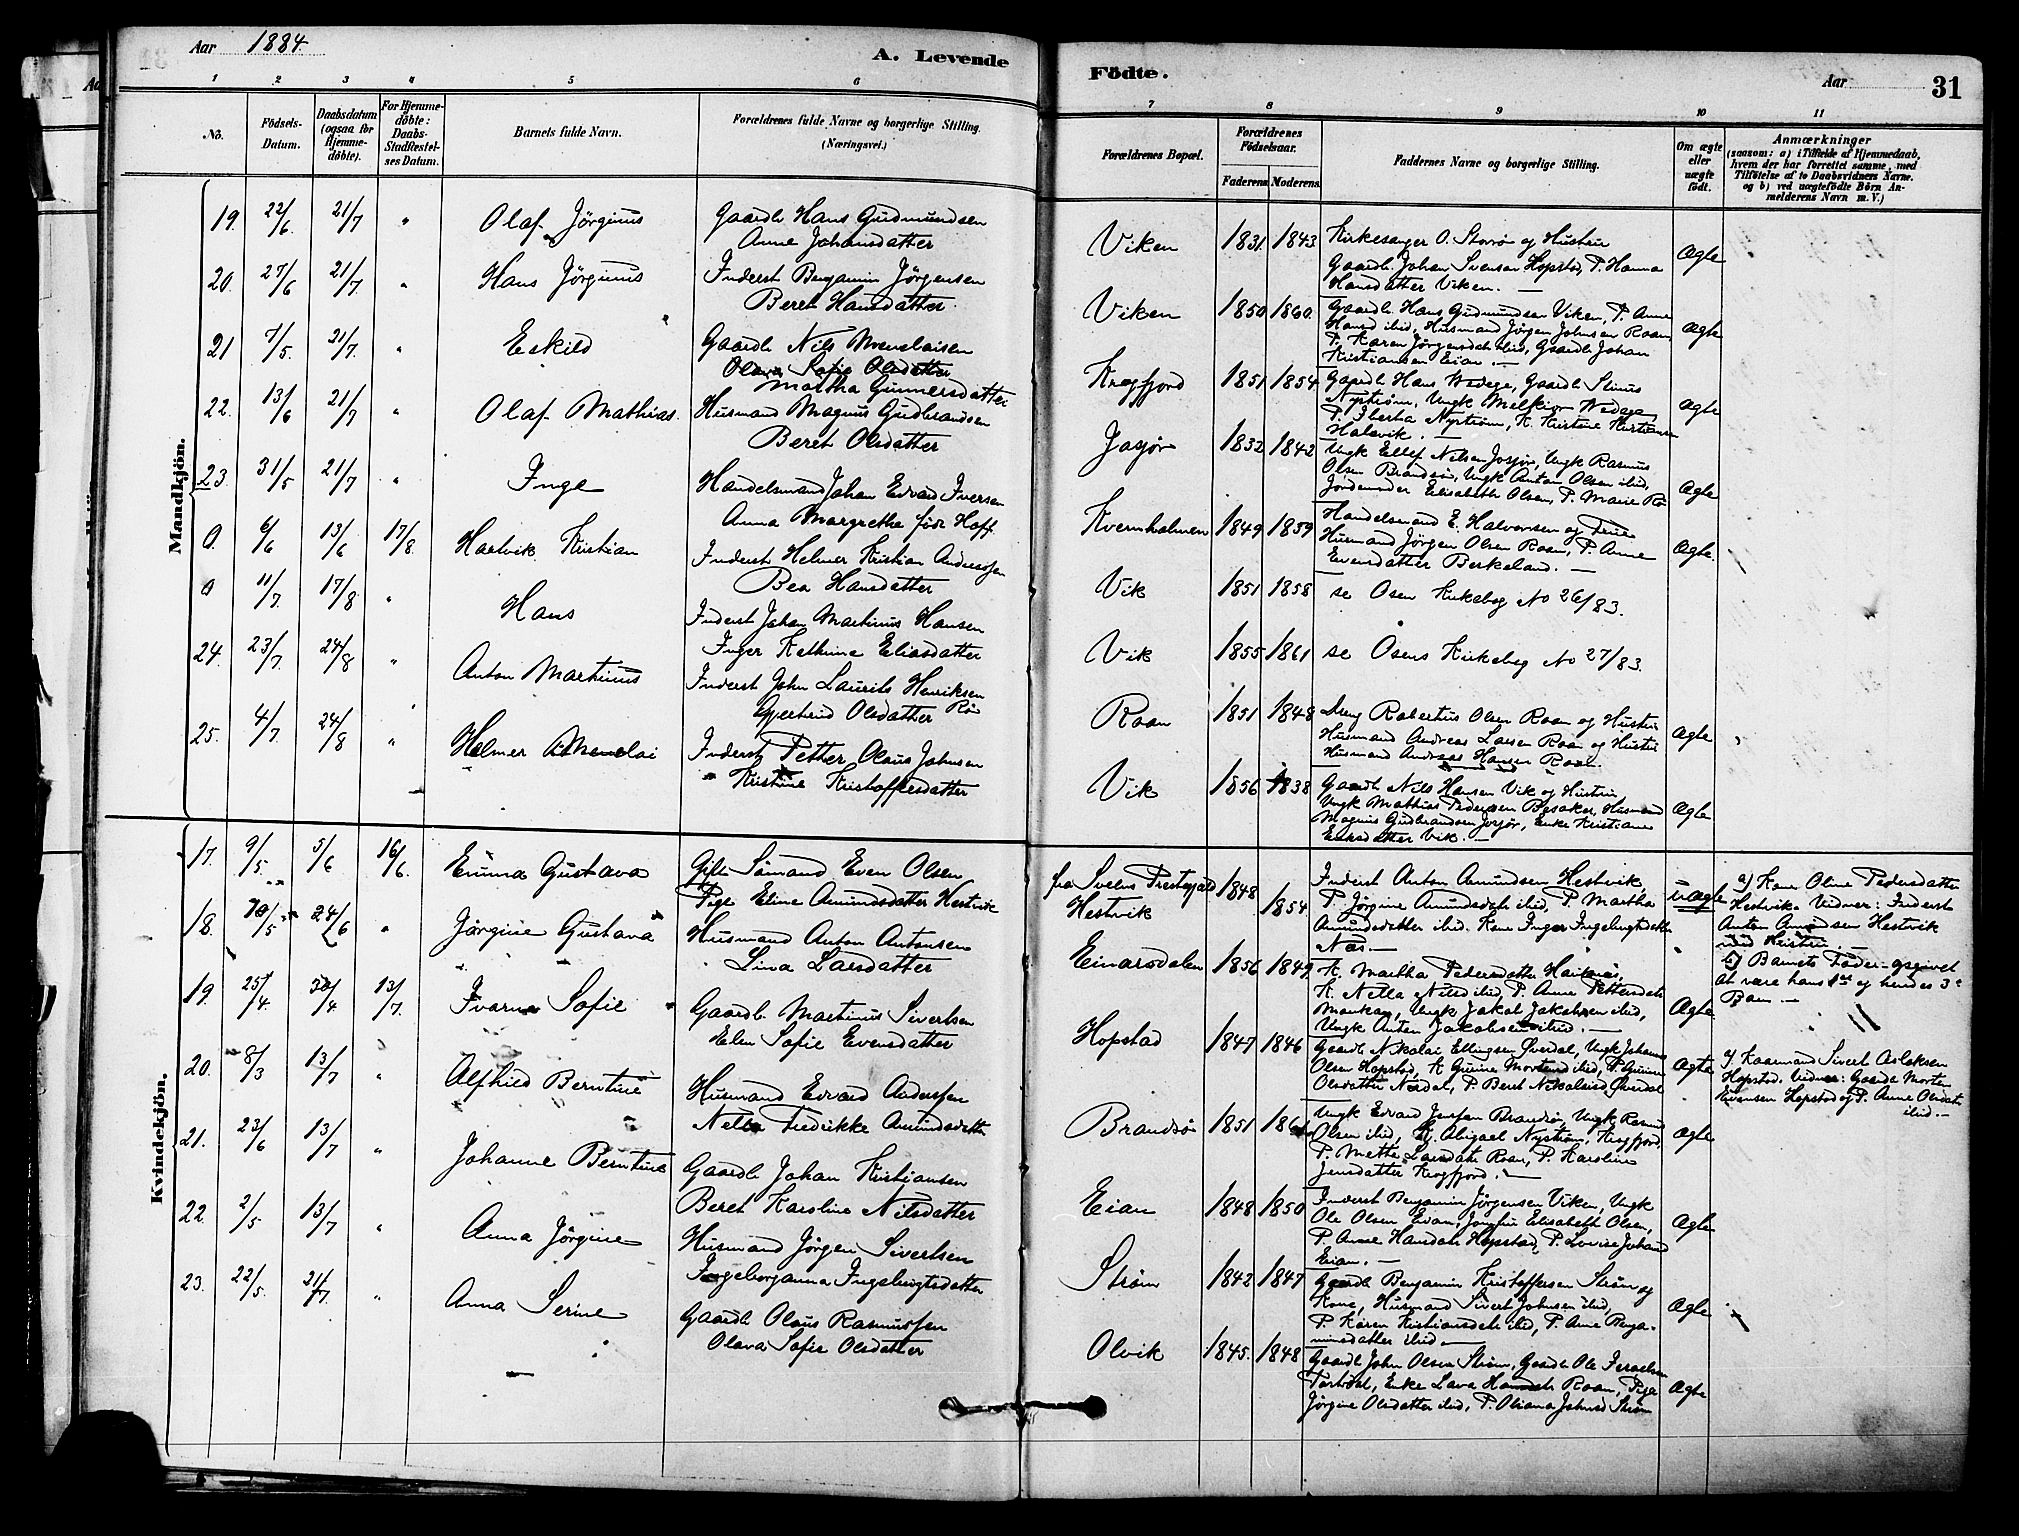 Aar 1884.
A. Levende
Födte.
Aar
31
1 2 3 4 5 6 7 8 9 10 11
No.
Födsels-Datum.
Daabsdatum (ogsaa for Hjemme-döbte).
For Hjemme-döbte: Daabs-Stadfæstel-ses Datum.
Barnets fulde Navn.
Forældrenes fulde Navne og borgerlige Stilling. (Næringsvei.)
Forældrenes Bopæl.
Forældrenes Födselsaar.
Faderens. Moderens.
Faddernes Navne og borgerlige Stilling.
Om ægte eller uægte födt.
Anmærkninger
(saasom: a) i Tilfælde af Hjemmedaab,
hvem der har forrettet samme, med
Tilföielse af to Daabsvidners Navne.
og b) ved uægtefödte Börn An-
melderens Navn m. V.)
Mandkjön.
19. 22/6 21/7 " Olaf Jörginus
Gaardb Hans Gudmundsen
Anne Johansdatter
Viken 1831 1843
Kirkesanger O. Storrö og Hustru
Gaardb. Johan Svensen Hopstad, P. Hanna
Hansdatter Viken. —
Ægte
20. 27/6 21/7 " Hans Jörginus
Inderst Benjamin Jörgensen
Beret Hansdatter
Viken 1850 1860
Gaardb Hans Gudmundsen Viken, P. Anne
Hansd ibid, Husmand Jörgen Johnsen Roan,
P. Karen Jörgensdatr ibid, Gaardb Johan
Kristiansen Eian. —
Ægte
21 7/5 21/7 " Eskild
Gaardb Nils Menelaisen
Olava Sofie Olsdatter
Martha Gunnersdatter
Kragfjord 1851 1854
Gaardb Hans Wedege, Gaardb Stinus
Nyström, Ungk Melkior Wedege,
P. Nyström, K. Kristine
Halsvik. —
Ægte
22. 13/6 21/7 " Olaf Mathias.
Husmand Magnus Gudbrandsen
Beret Olsdatter
Josjör 1832 1842
Ungk Ellef Nilsen Josjör, Ungk Rasmus
Olsen Brandsö, Ungk Anton Olsen ibid,
Jordemoder Elisabeth Olsen, P. Marie
Ægte
23. 31/5 21/7 " Inge
Handelsmand Johan Edvard Iversen
Anna Margrethe född Hoff
Kvernholmen 1849 1859
Handelsmand E. Halvorsen og Frue
Husmand Jörgen Olsen Roan, P. Anne
Evensdatter Berkeland. —
Ægte
0. 6/6 13/6 17/8 Hartvik Kristian
Inderst Helmer Kristian Anderssen
Bea Hansdatter
Vik 1851 1858
se Osen Kirkebog No 26/83.
0 11/7 17/8 " Hans
Inderst Johan Martinus Hansen
Inger Kathrine Eliasdatter
Vik 1855 1861
se Osens Kirkebog No 27/83.
24. 23/7 24/8 " Anton Martinus
Inderst John Laurits Henriksen
Gjertrud Olsdatter
Roan 1851 1848
Dreng Robertus Olsen Roan og Hustru
Husmand Andreas Larsen Roan og Hustru
Husmand Andreas Hansen Roan.
Ægte
25. 4/7 24/8 " Helmer Menelai
Inderst Petter Olaus Johnsen
Kristine Kristoffersdatter
Vik 1856 1838
Gaardb Nils Hansen Vik og Hustru,
Ungk Mathias Pedersen Besaker, Husmand
Magnus Gudbrandsen Josjör, Enke Kristiane
Eriksdatter Vik. —
Ægte
Kvindekjön.
17. 9/5 5/6 16/6 Emma Gustava
Gift Sömand Even Olsen
Pige Eline Amundsdatter Hestvik
fra Svelvs Prestegjeld Hestvik 1848 1854
Inderst Anton Amundsen Hestvik,
P. Jörgine Amundsdatr ibid, P. Martha
Amundsdatter ibid. Kone Inger Ingebrigtsdatter
Næs. —
uægte
a) Kone Oline Pedersdatter
Hestvik. Vidner: Inderst
Anton Amundsen Hestvik
med Hustru. —
b) Barnets Fader opgivet
at være hans 1ste og hendes 3e
Barn. —
18. 24/6 " Jörgine Gustava
Husmand Anton Antonsen
Lina Larsdatter
Einarsdalen 1856 1849
K. Martha Pedersdatter
K. Nella Nilsd ibid, P. Anne Pettersdatr
Ungk Jakob Jakobsen ibid,
Ungk Anton Jakobsen ibid. —
Ægte
19. 25/4 30/4 13/7 Ivarna Sofie
Gaardb. Martinus Sivertsen
Elen Sofie Evensdatter
Hopstad 1847 1846
Gaardb Nikolai Ellingsen Sverdal, Ungk Johannes
Olsen Hopstad, K. Guruine Mortensd ibid, P. Gurine
Olsdatter Nesdal, P. Beret Nikolaisd Sverdal
Ægte
a) Kaarmand Sivert Aslaksen
Hopstad. Vidner: Gaardb Morten
Svensen Hopstad og P. Anne Olsdatr
ibid. —
20. 8/3 13/7 " Alfhild Berntine
Husmand Edvard Anderssen
Nella Fredrikke Amundsdatter
Brandsö 1851
Ungk Edvard Jenssen Brandsö, Ungk Rasmus
Olsen ibid, K. Abigael Nyström, Kragfjord,
P. Mette Larsdatr Roan, P. Karoline
Jensdatter Kragfjord. —
Ægte
21. 23/6 13/7 " Johanne Berntine
Gaardb Johan Kristiansen
Beret Karoline Nilsdatter
Eian 1848 1850
Inderst Benjamin Jörgensen Viken, Ungk
Ole Olsen Evan, Jomfru Elisabeth Olsen,
P. Anne Hansdatr Hopstad, P. Lovise Johansd
Eian. —
Ægte
22. 2/5 13/7 " Anna Jörgine
Husmand Jörgen Sivertsen
Ingeborganna Ingebrigtsdatter
Ström 1842 1847
Gaardb Benjamin Kristoffersen Ström og
Kone, Husmand Sivert Johnsen ibid,
P. Karen Kristiansdatr ibid, P. Anne Benja-
minsdatter ibid. —
Ægte
23. 22/5 21/7 " Anna Serine
Gaardb Olaus Rasmussen
Olava Sofie Olsdatter
Olvik 1845. 1848
Gaardb John Olsen Ström, Gaardb Ole Israelsen
Enke Lava Hansdatr Roan, Pige
Jörgine Olsdatter ibid, P. Oliana Johnsd Ström
Ægte